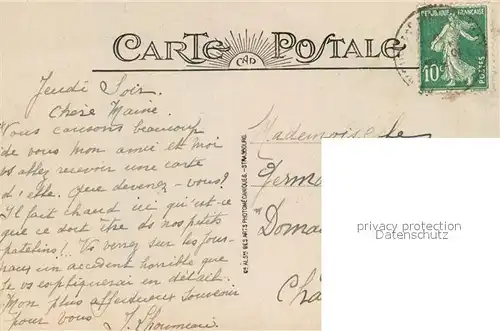 CARTE POSTALE
CAD
REPUBLIQUE FRANÇAISE
10c
POSTES
Jeudi Soir.
Chère Maine.
Vous causons beaucoup
de vous mon amie et moi
vs allez recevoir une carte
d'elle. Que devenez-vous?
Il fait chaud ici qu'est-ce
que ce doit être ds nos petits
patelins!.. Vs verrez sur les jour-
naux un accident horrible que
je vs expliquerai en détail.
Mon plus affectueux souvenir
pour vous
Sté ALSNE DES ARTS PHOTOMÉCANIQUES - STRASBOURG.
Mademoiselle
Germa
"Doma
Châ
privacy protection
Datenschutz